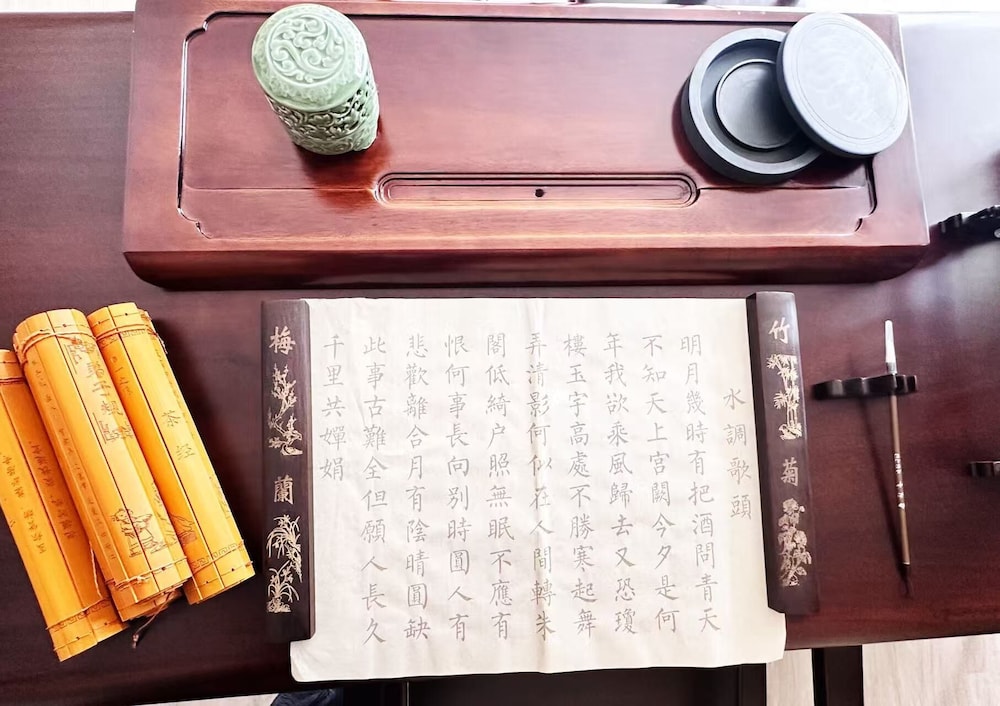 竹 菊
水調歌頭
明月幾時有把酒問青天
不知天上宮闕今夕是何
年我欲乘風歸去又恐瓊
樓玉宇高處不勝寒起舞
弄清影何似在人間轉朱
閣低綺户照無眠不應有
恨何事長向别時圓人有
悲歡離合月有陰晴圓缺
此事古難全但願人長久
千里共嬋娟
梅 蘭
茶经